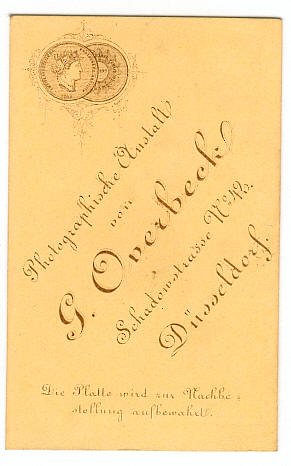 Photographische Anstalt
von
G. Overbeck
Schadowstrasse No 42.
Düsseldorf.
Die Platte wird zur Nachbe=
stellung aufbewahrt.